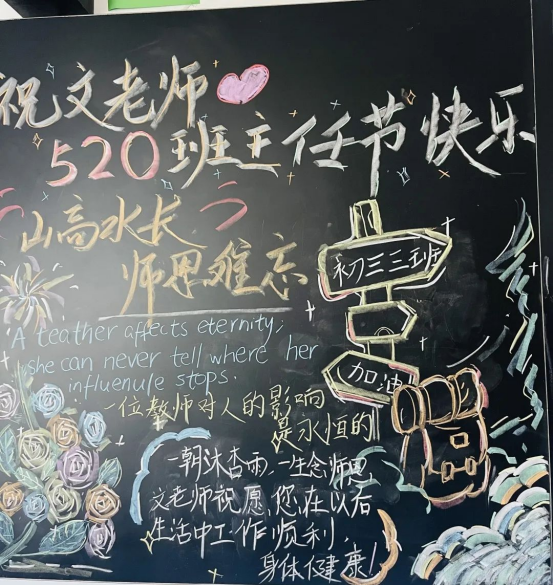 祝文老师
520班主任节快乐
山高水长
师恩难忘
初三三班
加油
A teather affects eternity;
she can never tell where her
influenule stops.
一位教师对人的影响
是永恒的
一朝沐杏雨,一生念师恩
文老师祝愿,您在以后
生活中工作顺利,
身体健康!